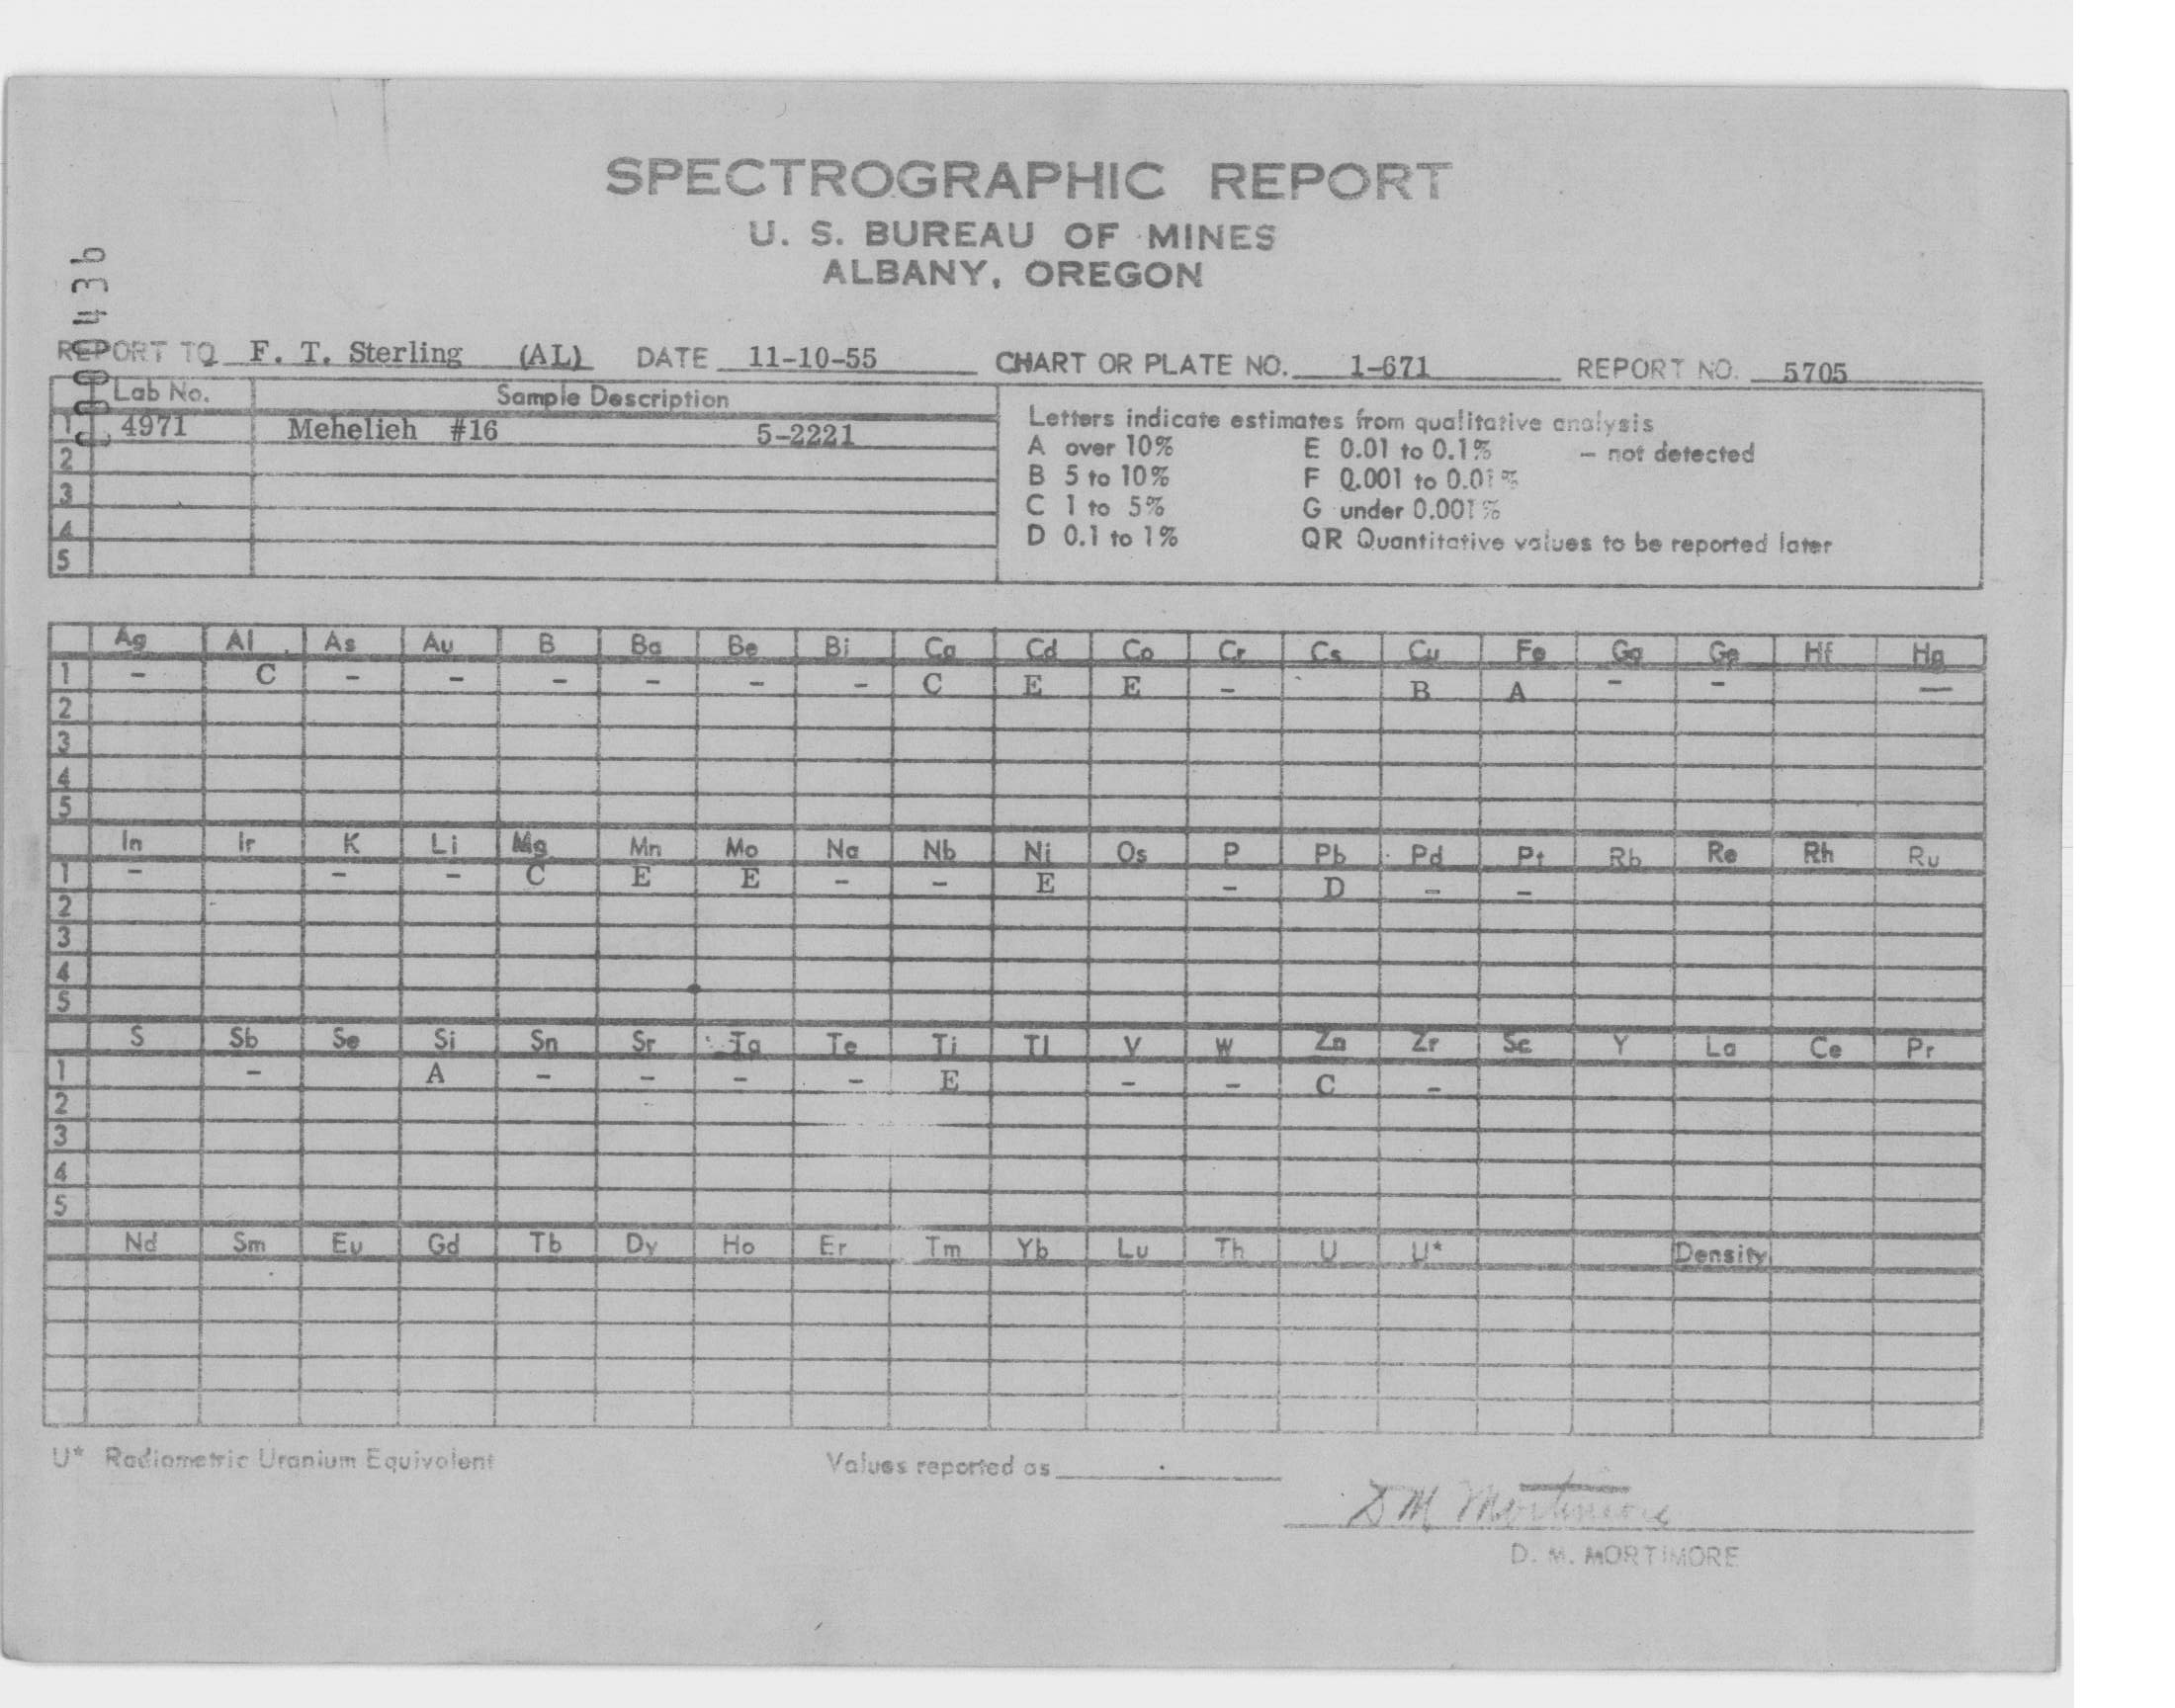 SPECTROGRAPHIC REPORT
U. S. BUREAU OF MINES
ALBANY, OREGON
REPORT TO F. T. Sterling (AL) DATE 11-10-55 CHART OR PLATE NO. 1-671 REPORT NO. 5705
Lab No. Sample Description
1 4971 Mehelieh #16 5-2221
2
3
4
5
Letters indicate estimates from qualitative analysis
A over 10% E 0.01 to 0.1% - not detected
B 5 to 10% F 0.001 to 0.01%
C 1 to 5% G under 0.001%
D 0.1 to 1% QR Quantitative values to be reported later
Ag Al As Au B Ba Be Bi Ca Cd Co Cr Cs Cu Fe Ga Ge Hf Hg
1 - C - - - - - - C E E - B A - - -
2
3
4
5
In Ir K Li Mg Mn Mo Na Nb Ni Os P Pb Pd Pt Rb Re Rh Ru
1 - - - C E E - - E - D - -
2
3
4
5
S Sb Se Si Sn Sr Ta Te Ti Tl V W Zn Zr Sc Y La Ce Pr
1 - A - - - - E - - C -
2
3
4
5
Nd Sm Eu Gd Tb Dy Ho Er Tm Yb Lu Th U U* Density
U* Radiometric Uranium Equivalent Values reported as
D M Mortimore
D. M. MORTIMORE